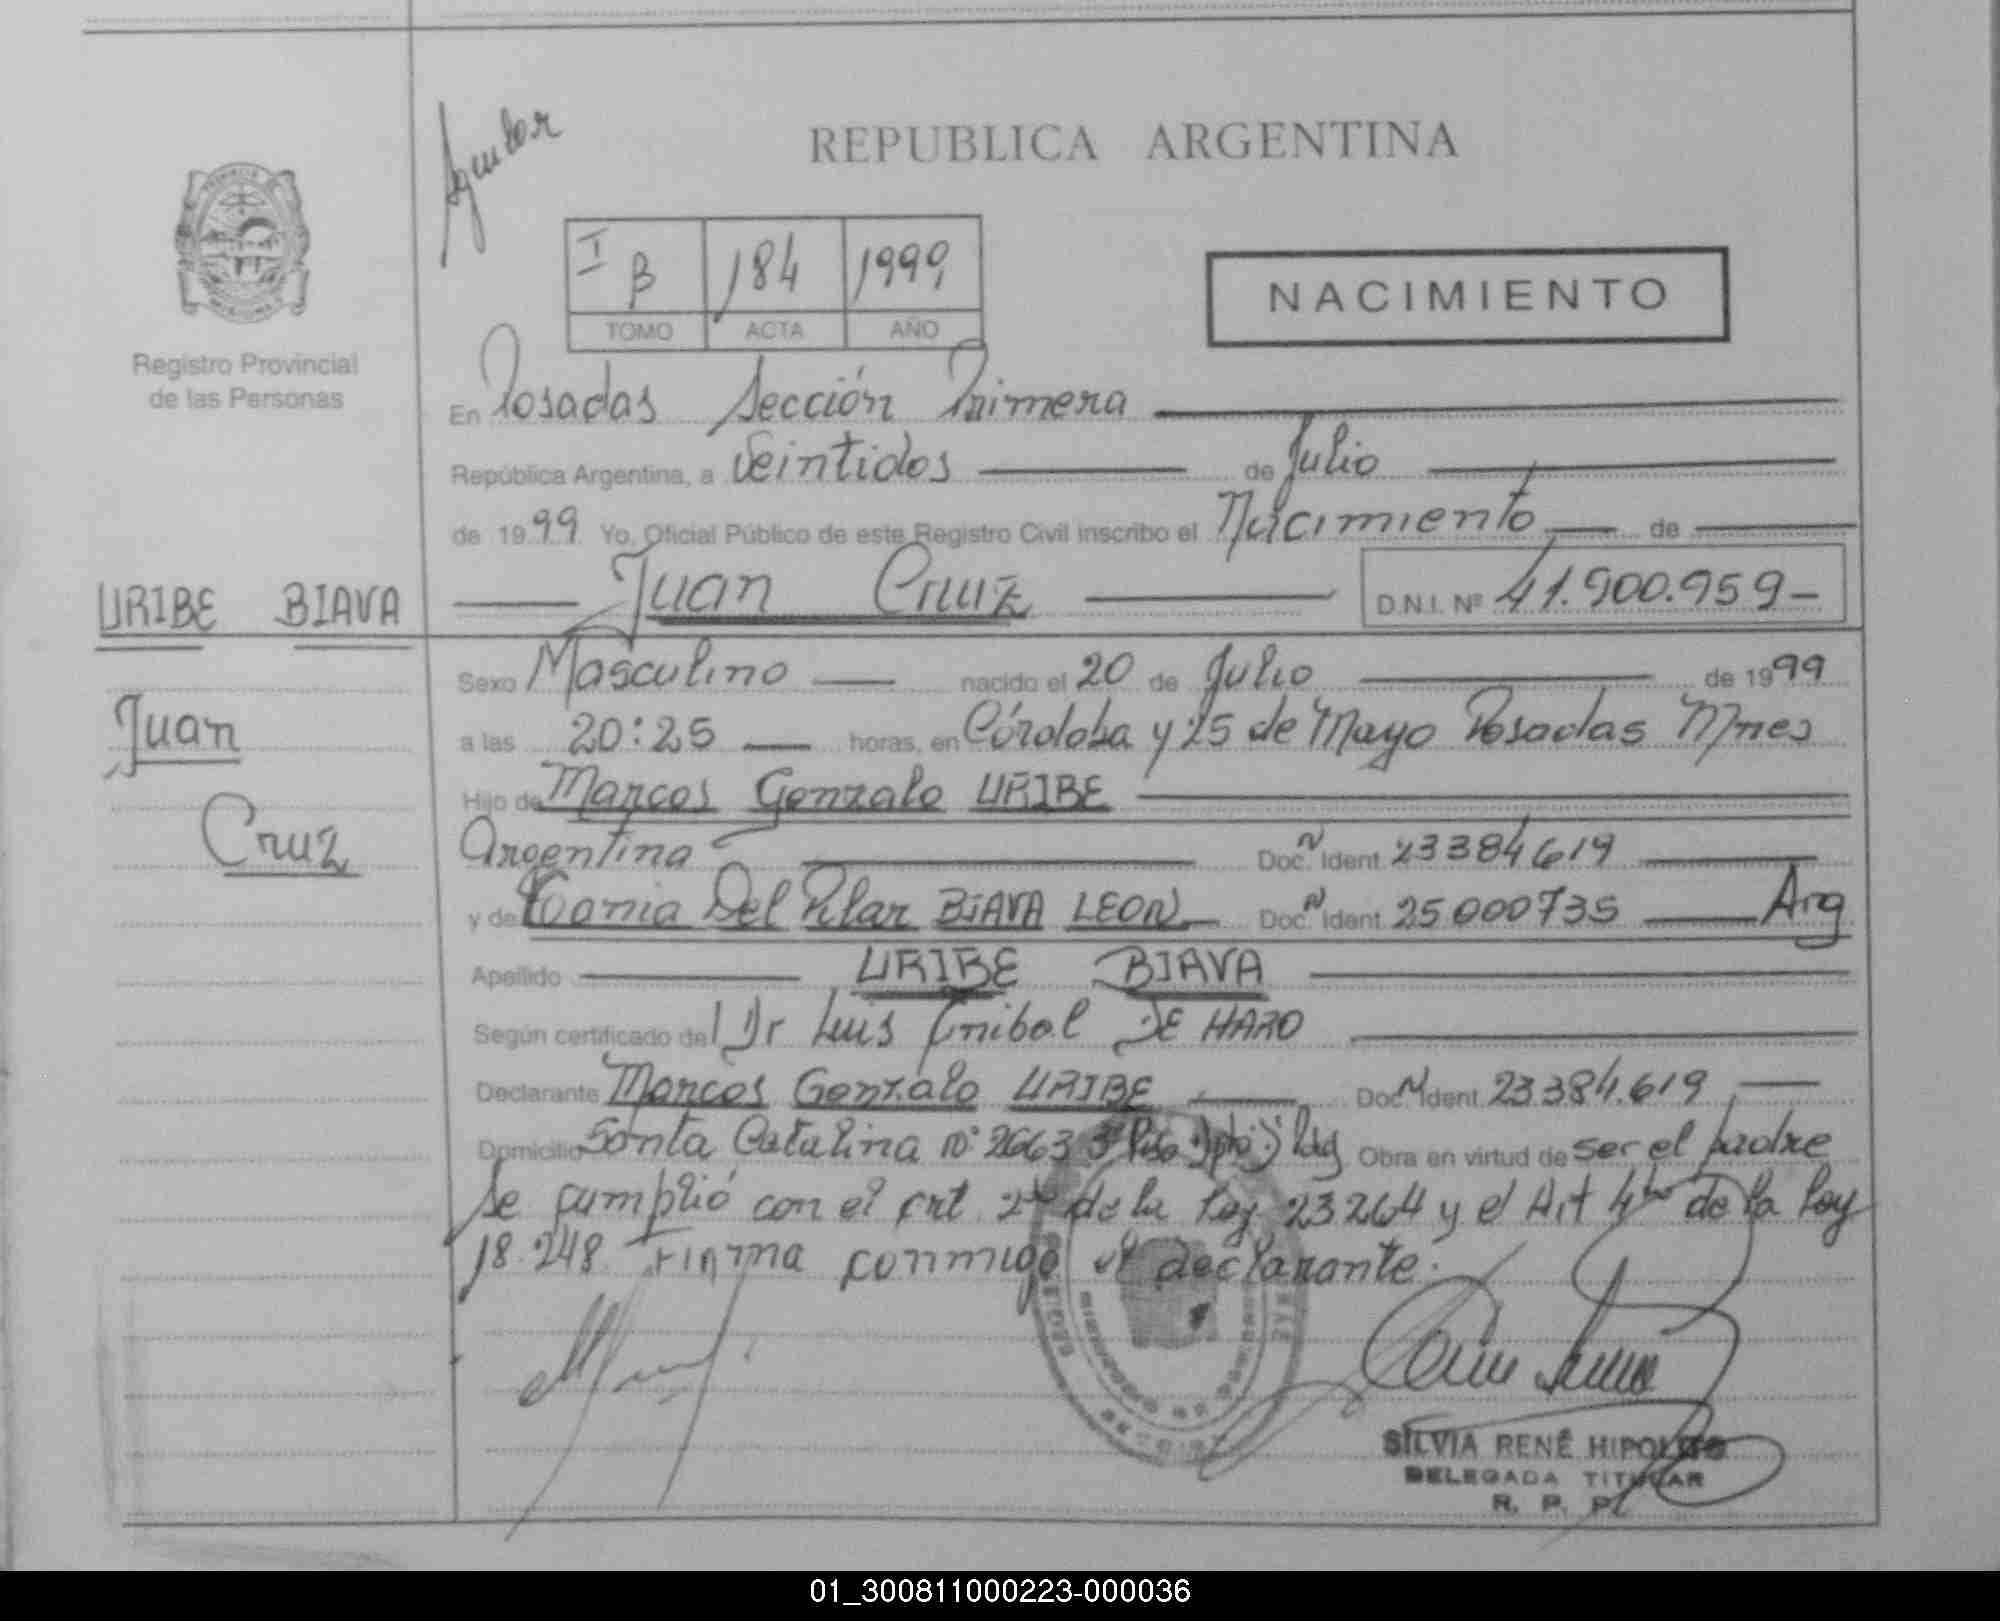 Aguilar
REPUBLICA ARGENTINA
I B 184 1999
TOMO ACTA AÑO
NACIMIENTO
Registro Provincial
de las Personas
En Posadas Sección Primera
República Argentina, a Veintidos de Julio
de 1999 Yo, Oficial Público de este Registro Civil inscribo el Nacimiento de
URIBE BIAVA
Juan Cruz D.N.I. Nº 41.900.959-
Juan
Cruz
Sexo Masculino nacido el 20 de Julio de 1999
a las 20:25 horas, en Córdoba y 25 de Mayo Posadas Mnes
Hijo de Marcos Gonzalo URIBE
Argentina Doc. Ident. 23384619
y de Del Pilar BIAVA LEON Doc. Ident. 25000735 Arg
Apellido URIBE BIAVA
Según certificado del Dr Luis Anibal DE HARO
Declarante Marcos Gonzalo URIBE Doc. Ident. 23.384.619
Domicilio Santa Catalina Nº 2663 3º Piso Obra en virtud de ser el padre
Se cumplió con el Art. 2do de la Ley 23264 y el Art 4to de la Ley
18.248. Firma conmigo el declarante.
SILVIA RENÉ HIPOLITO
DELEGADA TITULAR
R. P. P.
01_300811000223-000036